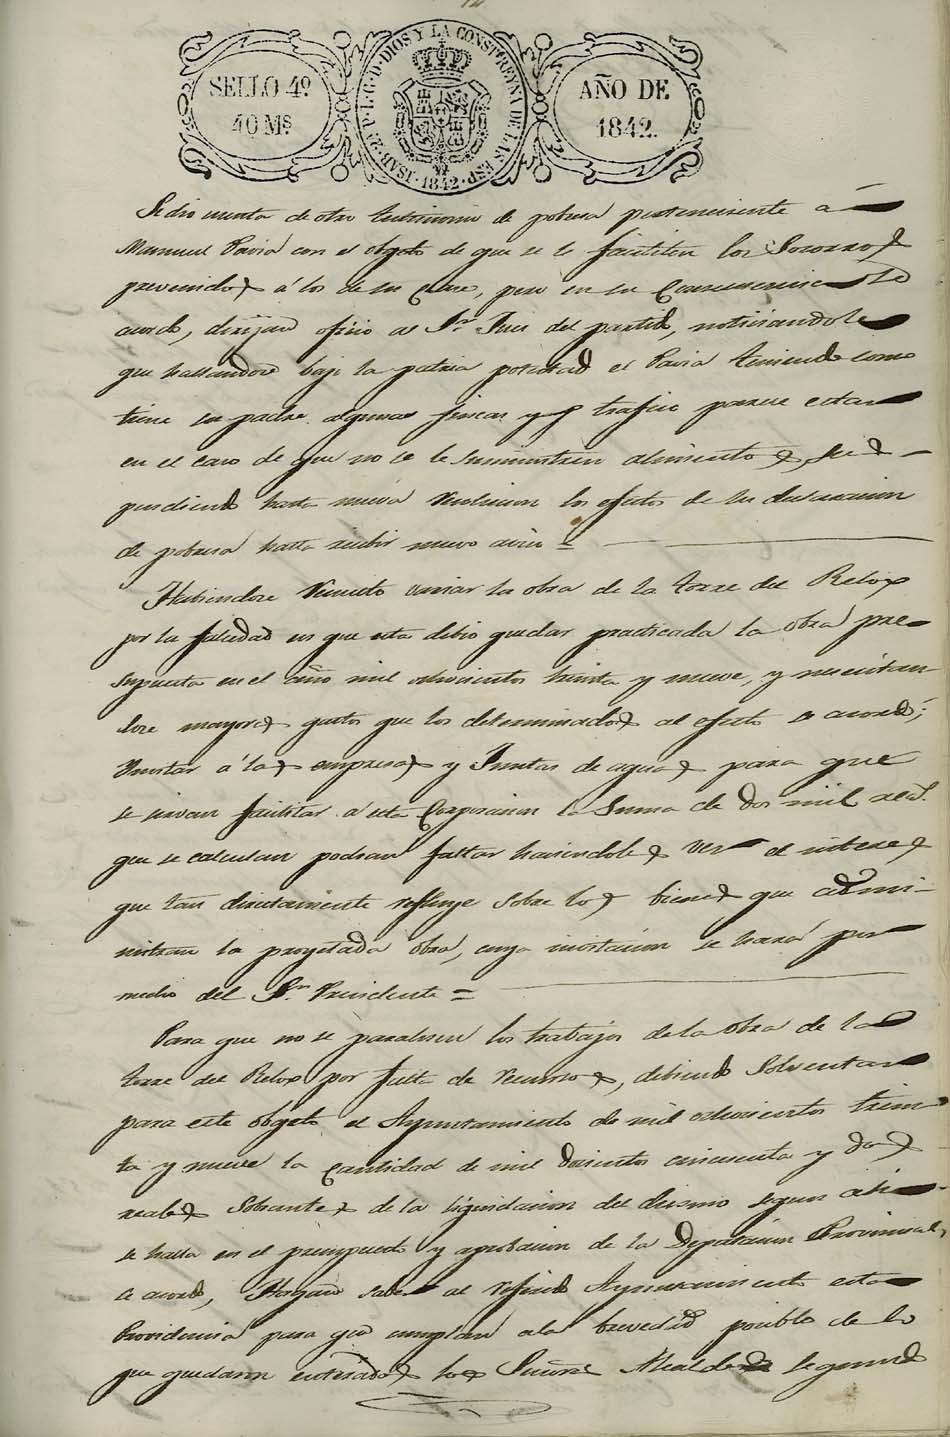 SELLO 4º
40 Ms
ISAB. 2ª P. L. G. D. DIOS Y LA CONST. REYNA DE LAS ESP. 1842.
AÑO DE
1842.
Se dio cuenta de otro testimonio de pobresa perteneciente á
Manuel Pavia con el objeto de que se le faciliten los Socorros
prevenidos á los de su Clase, pero en su Consecuencia se
acordó, dirijan oficio al Sr. Juez del partido, noticiandole
que hallandose bajo la patria potestad el Pavia teniendo como
tiene su padre algunas fincas y trafico parece estar
en el caso de que no se le suministren alimentos, sus-
pendiendo hasta nueva resolucion los efectos de su declaracion
de pobresa hasta recibir nuevo aviso =
Habiendose resuelto variar la obra de la torre del Relox
por la falsedad en que esta debio quedar practicada la obra pre-
supuesta en el año mil ochocientos treinta y nueve, y necesitan-
dose mayores gastos que los determinados al efecto se acordó;
Ynvitar á las empresas y Juntas de aguas para que
se sirvan facilitar á esta Corporacion la Suma de dos mil reas.
que se calculan podran faltar haciendoles ver el interes
que tan directamente refluye sobre los bienes que admi-
nistran la proyetada obra, cuya invitacion se hará por
medio del Sr. Presidente =
Para que no se paralisen los trabajos de la obra de la
torre del Relox por falta de recursos, debiendo Solventar
para este objeto el Ayuntamiento de mil ochocientos trein
ta y nueve la Cantidad de mil doscientos cincuenta y dos
reales Sobrantes de la liquidacion del diesmo segun asi
se halla en el presupuesto y aprobacion de la Diputacion Provincial,
se acordó, Hagase saber al referido Ayuntamiento esta
Providencia para que cumplan a la brevedad posible de lo
que quedaron enterados los Señores Alcaldes segundo